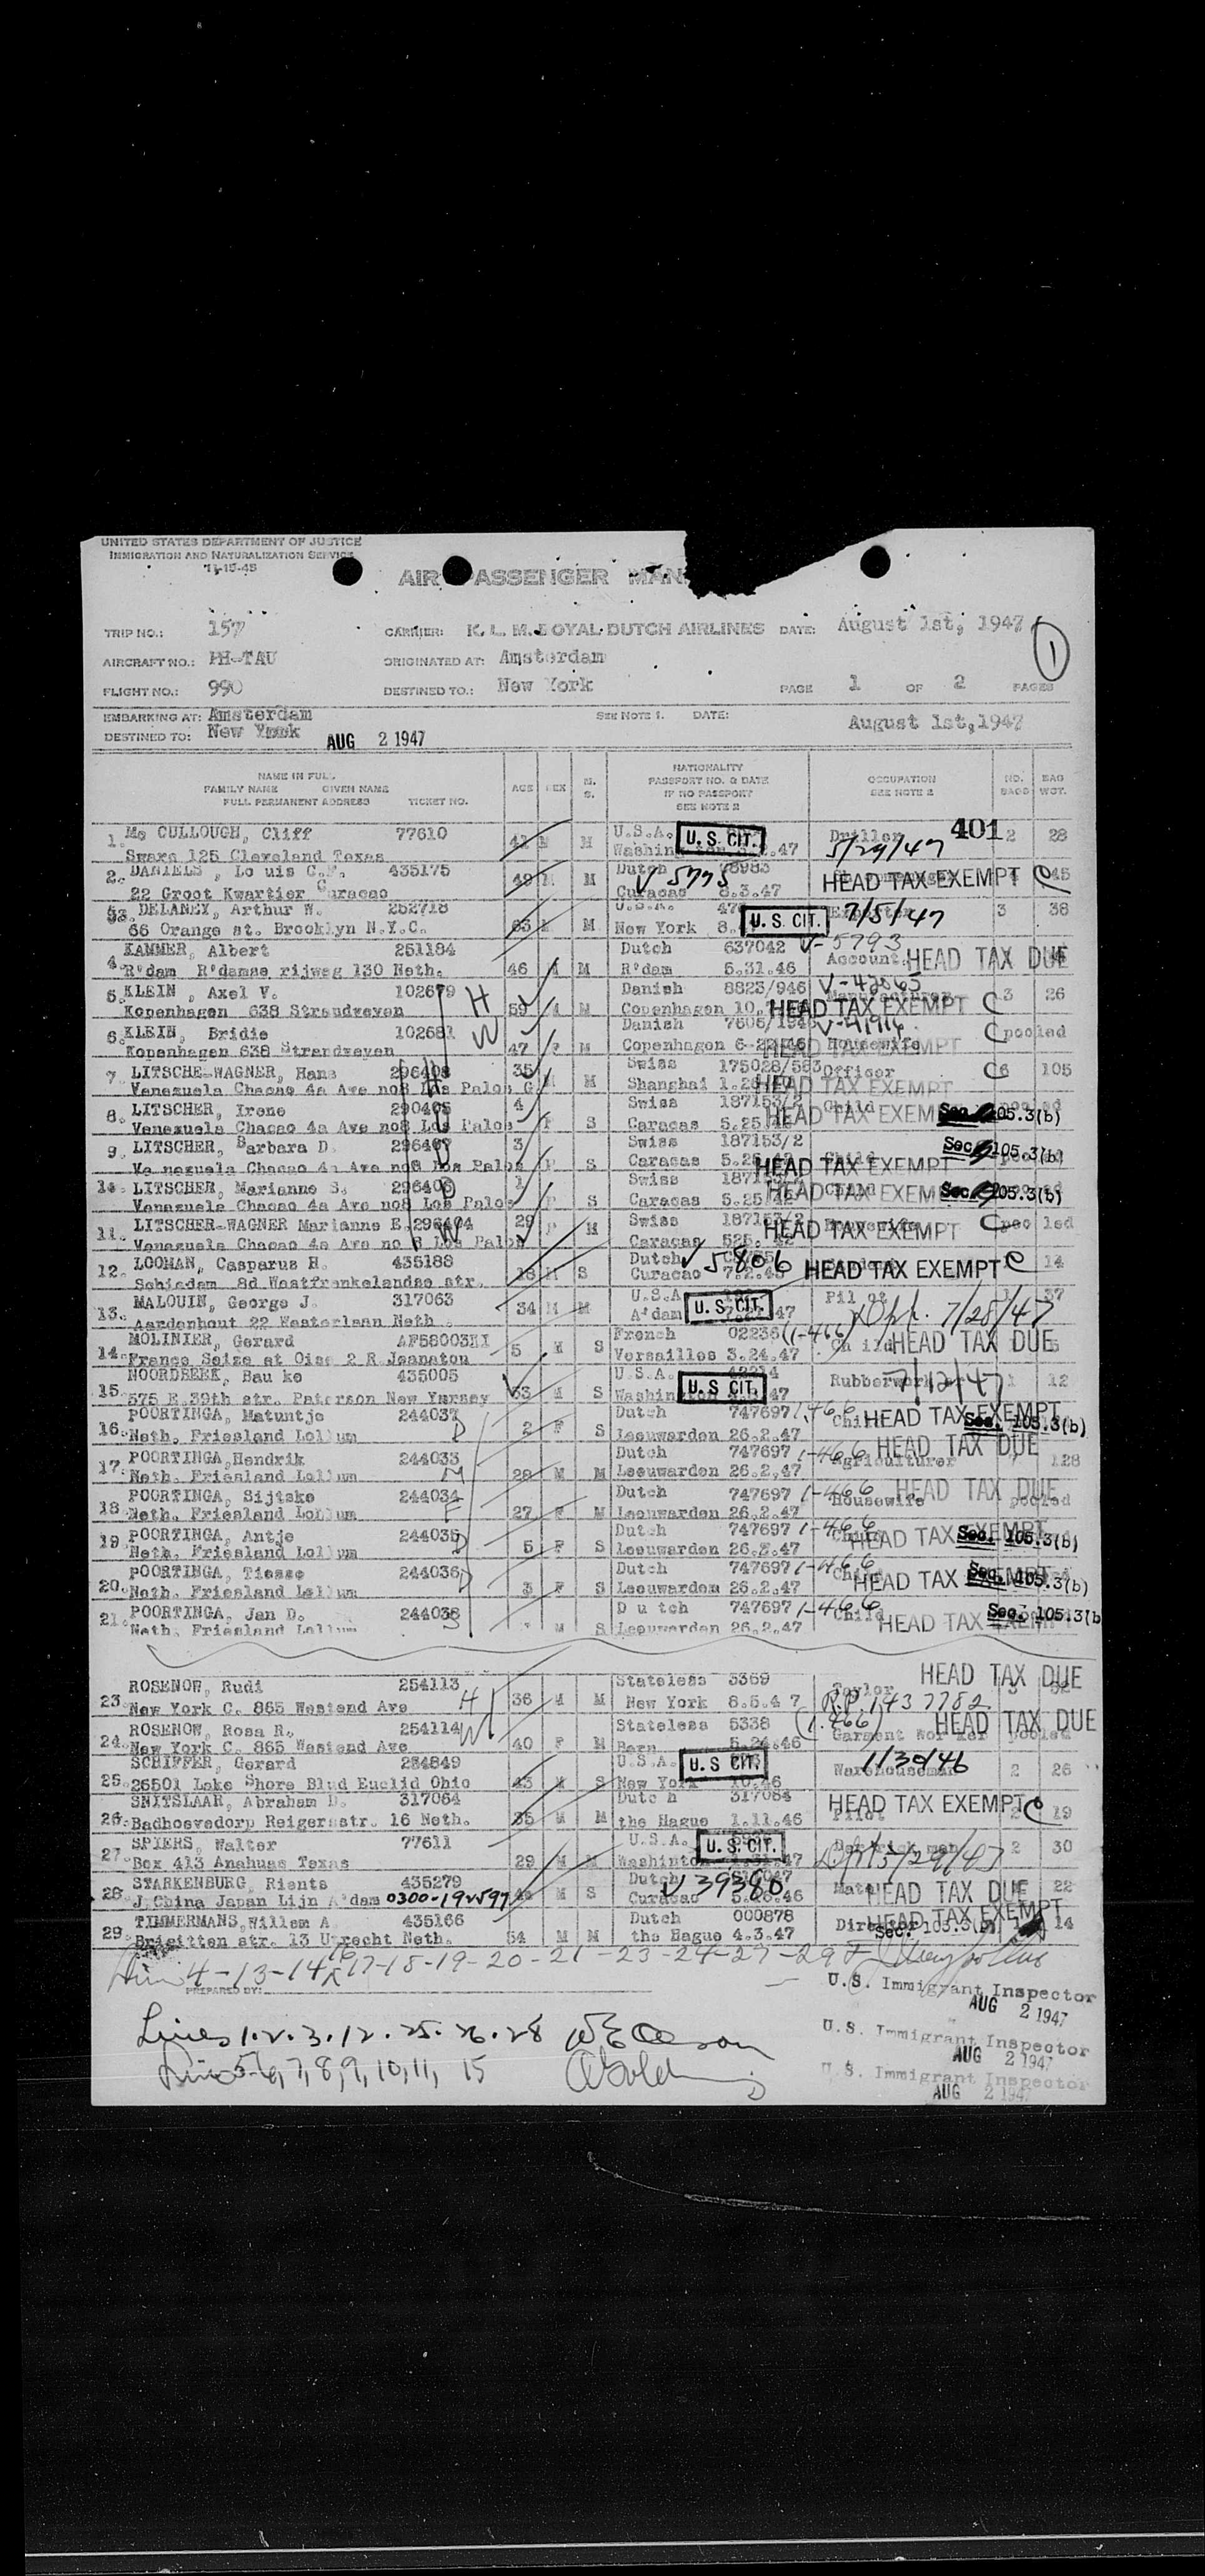 UNITED STATES DEPARTMENT OF JUSTICE
IMMIGRATION AND NATURALIZATION SERVICE
11-15-45
AIR PASSENGER MAN
TRIP NO.: 157 CARRIER: K. L. M. ROYAL DUTCH AIRLINES DATE: August 1st, 1947
1
AIRCRAFT NO.: PH-TAU ORIGINATED AT: Amsterdam
FLIGHT NO.: 990 DESTINED TO.: New York PAGE 1 OF 2 PAGES
EMBARKING AT: Amsterdam SEE NOTE 1. DATE: August 1st,1947
DESTINED TO: New York AUG 2 1947
NAME IN FULL
FAMILY NAME GIVEN NAME
FULL PERMANENT ADDRESS TICKET NO.
AGE SEX M. S.
NATIONALITY
PASSPORT NO. & DATE
IF NO PASSPORT
SEE NOTE 2
OCCUPATION
SEE NOTE 2
NO. BAGS
BAG WGT.
1. Mc CULLOUGH, Cliff 77610 41 M M U.S.A. U. S. CIT. Driller 401 2 28
Swarg 125 Cleveland Texas Washington 47 5/29/47
2. DANIELS , Lo uis C. 435175 49 M M Dutch 78983 V 5775 HEAD TAX EXEMPT C 45
22 Groot Kwartier Curacao Curacas 8.3.47
3. DELANEY, Arthur W. 252718 63 M U.S.A. U. S. CIT. 7/5/47 3 38
66 Orange st. Brooklyn N.Y.C. New York 8.
4. KAMMER, Albert 251184 46 M M Dutch 637042 V-5793 Account. HEAD TAX DUE
R'dam R'damse rijweg 130 Neth. R'dam 5.31.46
5. KLEIN , Axel V. 102679 H 59 M M Danish 8823/946 V-42065 HEAD TAX EXEMPT C 3 26
Kopenhagen 638 Strandveyen Copenhagen 10.
6. KLEIN, Bridie 102681 W 47 F M Danish 7606/1946 V-41916 Housewife HEAD TAX EXEMPT C pooled
Kopenhagen 638 Strandveyen Copenhagen 6-22-46
7. LITSCHE-WAGNER, Hans 296408 H 35 M M Swiss 175028/583 Officer HEAD TAX EXEMPT C 6 105
Venezuela Chacao 4a Ave no8 Los Palos G. Shanghai 1.26
8. LITSCHER, Irene 290405 D 4 F S Swiss 187153/2 Child HEAD TAX EXEMPT Sec. 105.3(b)
Venezuela Chacao 4a Ave no8 Los Palos Caracas 5.25
9. LITSCHER, Barbara D. 296407 D 3 F S Swiss 187153/2 HEAD TAX EXEMPT Sec. 105.3(b)
Ve nezuela Chacao 4a Ave no8 Los Palos Caracas 5.25
10. LITSCHER, Marianne S. 296406 D 1 F S Swiss HEAD TAX EXEMPT Sec. 105.3(b)
Venezuela Chacao 4a Ave no8 Los Palos Caracas 5.25
11. LITSCHER-WAGNER Marianne E. 296404 W 29 F M Swiss 187153/2 HEAD TAX EXEMPT C pooled
Venezuela Chacao 4a Ave no 8 Los Palos Caracas
12. LOOMAN, Casparus H. 435188 M S Dutch V 5806 HEAD TAX EXEMPT C 14
Schiedam 8d Westfrankelandse str. Curacao 7.2.45
13. MALOUIN, George J. 317063 34 M M U.S.A. U. S. CIT. Pilot 37
Aerdenhout 22 Westerlaan Neth. A'dam 47 7/28/47
14. MOLINIER, Gerard AF58003HI 5 M S French 02236 (1-466) Child HEAD TAX DUE
France Seize at Oise 2 R Jeanaton Versailles 3.24.47
15. NOORDBEEK, Bau ke 435005 53 M S U.S.A. U. S. CIT. Rubberworker 7/12/47 1 12
575 E.39th str. Paterson New Yersey Washington 47
16. POORTINGA, Matuntje 244037 D 2 F S Dutch 747697 1-466 Child HEAD TAX EXEMPT Sec. 105.3(b)
Neth. Friesland Lollum Leeuwarden 26.2.47
17. POORTINGA,Hendrik 244033 M 28 M M Dutch 747697 1-466 Agriculturer HEAD TAX DUE 128
Neth. Friesland Lollum Leeuwarden 26.2.47
18. POORTINGA, Sijtske 244034 F 27 F M Dutch 747697 1-466 Housewife HEAD TAX DUE pooled
Neth. Friesland Lollum Leeuwarden 26.2.47
19. POORTINGA, Antje 244035 D 5 F S Dutch 747697 1-466 Child HEAD TAX EXEMPT Sec. 105.3(b)
Neth. Friesland Lollum Leeuwarden 26.2.47
20. POORTINGA, Tiesse 244036 D 3 F S Dutch 747697 1-466 Child HEAD TAX EXEMPT Sec. 105.3(b)
Neth. Friesland Lollum Leeuwarden 26.2.47
21. POORTINGA, Jan D. 244038 S M S D u tch 747697 1-466 Child HEAD TAX EXEMPT Sec. 105.3(b
Neth. Friesland Lollum Leeuwarden 26.2.47
23. ROSENOW, Rudi 254113 H 36 M M Stateless 5369 Taylor HEAD TAX DUE
New York C. 865 Westend Ave New York 8.5.4 7 R.P 1437782
24. ROSENOW, Rosa R. 254114 W 40 F M Stateless 5338 (1.466) Garment Wor ker HEAD TAX DUE pooled
New York C. 865 Westend Ave Bern 5.24.46
25. SCHIFFER, Gerard 284849 43 M S U.S.A. U. S CIT. Warehouseman 1/30/46 2 26
26501 Lake Shore Blud Euclid Ohio New York 10.46
26. SNITSLAAR, Abraham D. 317064 35 M M Dutc h 317064 Pilot HEAD TAX EXEMPT C 19
Badhoevedorp Reigersstr. 16 Neth. the Hague 1.11.46
27. SPIERS, Walter 77611 29 M M U.S.A. U. S. CIT. 2 30
Box 413 Anahuac Texas Washinton 47 5/29/47
28. STARKENBURG, Rients 435279 M S Dutch V 39380 Mate HEAD TAX DUE 22
J.China Japan Lijn A'dam 0300-192597 Curacao 46
29. TIMMERMANS,Willem A. 435166 54 M M Dutch 000878 Director HEAD TAX EXEMPT Sec. 105.3(b) 1 14
Brigitten str. 13 Utrecht Neth. the Hague 4.3.47
4-13-14-16-17-18-19-20-21-23-24-27-29
PREPARED BY:
U.S. Immigrant Inspector
AUG 2 1947
Lines 1.2.3.12.25.26.28
U.S. Immigrant Inspector
AUG 2 1947
Lines 5-6, 7, 8, 9, 10, 11, 15
U.S. Immigrant Inspector
AUG 2 1947